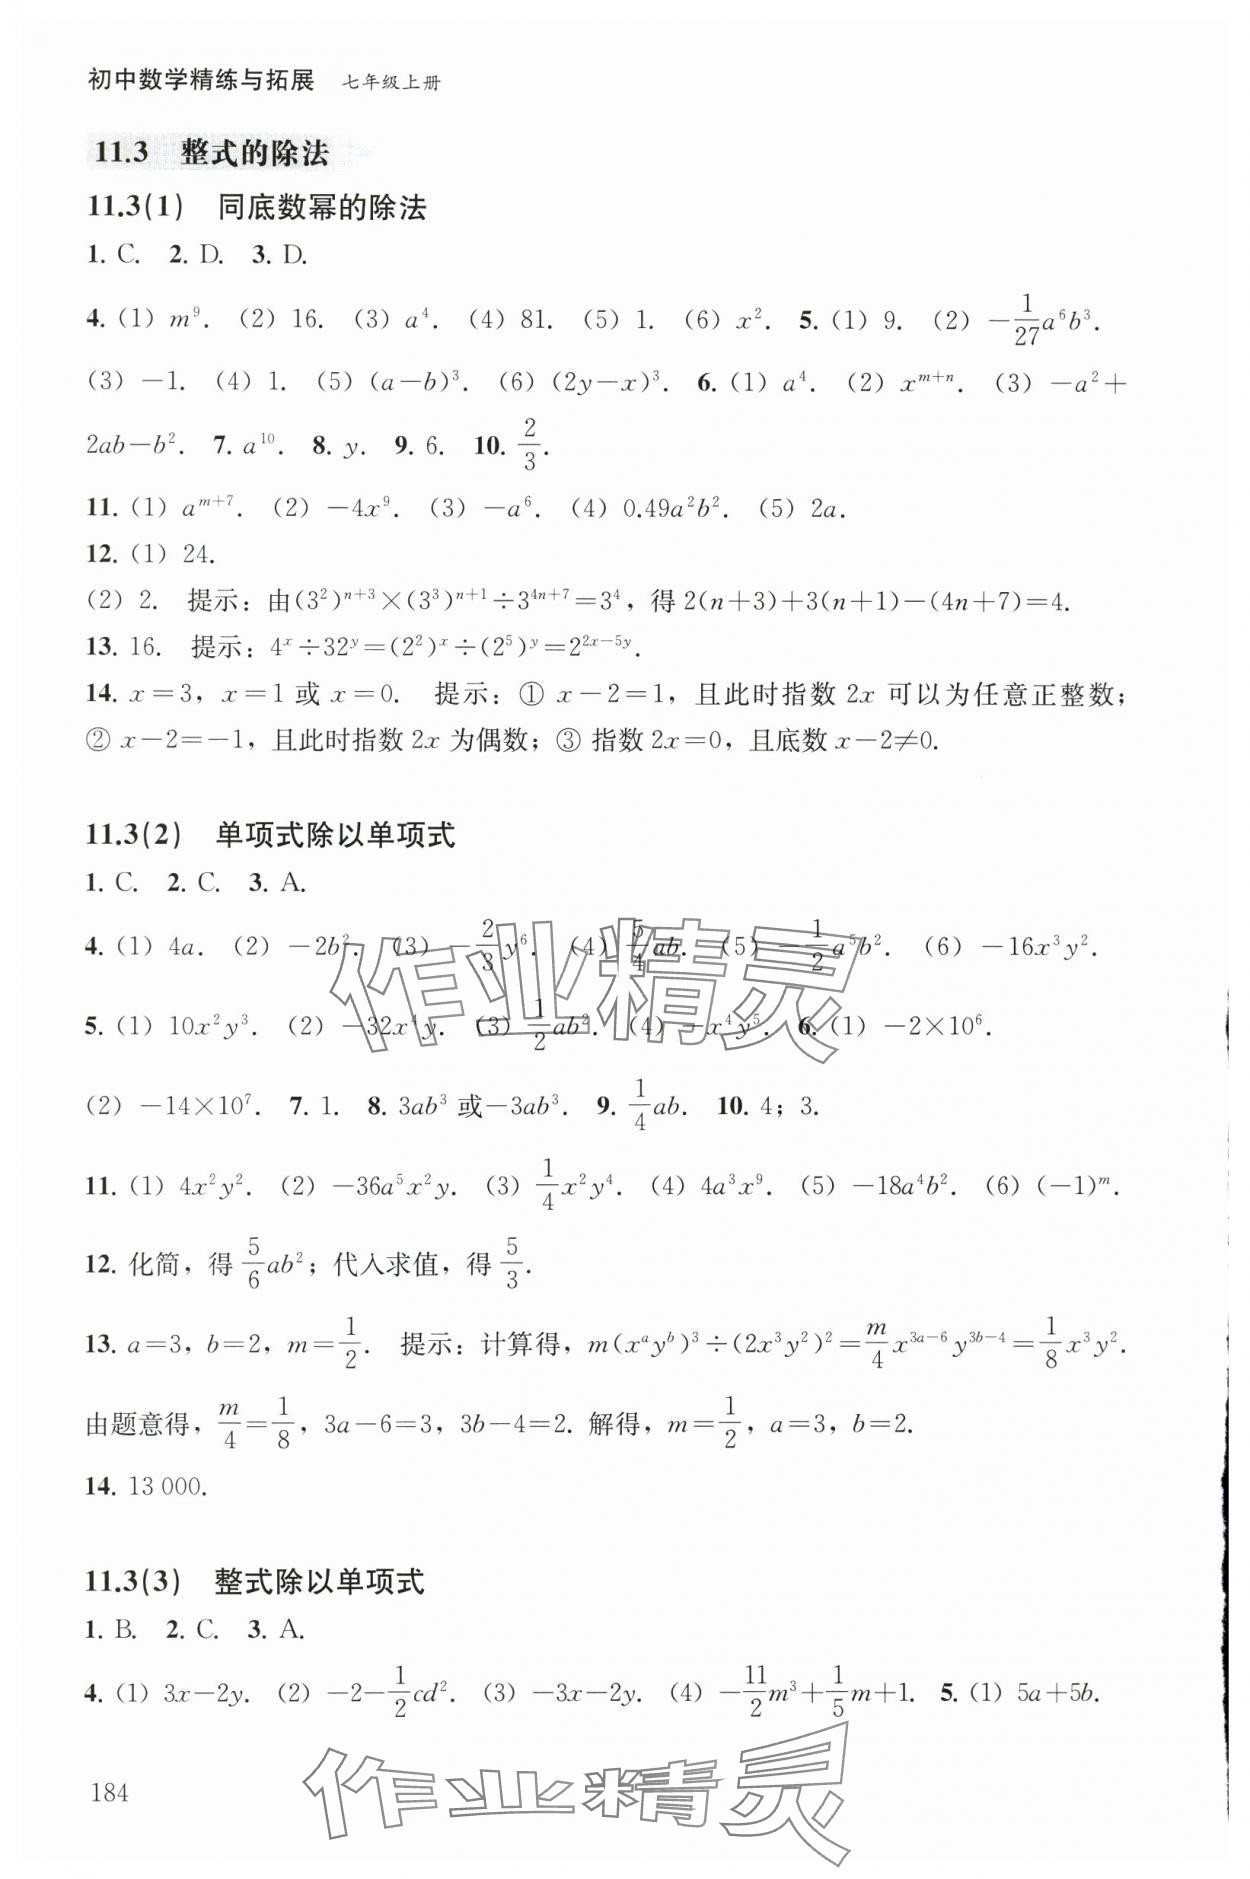 初中数学精练与拓展 七年级上册
11.3 整式的除法
11.3(1) 同底数幂的除法
1. C. 2. D. 3. D.
4. (1) m⁹. (2) 16. (3) a⁴. (4) 81. (5) 1. (6) x². 5. (1) 9. (2) −1/27a⁶b³.
(3) −1. (4) 1. (5) (a−b)³. (6) (2y−x)³. 6. (1) a⁴. (2) xᵐ⁺ⁿ. (3) −a²+
2ab−b². 7. a¹⁰. 8. y. 9. 6. 10. 2/3.
11. (1) aᵐ⁺⁷. (2) −4x⁹. (3) −a⁶. (4) 0.49a²b². (5) 2a.
12. (1) 24.
(2) 2. 提示：由(3²)ⁿ⁺³×(3³)ⁿ⁺¹÷3⁴ⁿ⁺⁷=3⁴，得 2(n+3)+3(n+1)−(4n+7)=4.
13. 16. 提示：4ˣ÷32ʸ=(2²)ˣ÷(2⁵)ʸ=2²ˣ⁻⁵ʸ.
14. x=3，x=1 或 x=0. 提示：① x−2=1，且此时指数 2x 可以为任意正整数；
② x−2=−1，且此时指数 2x 为偶数；③ 指数 2x=0，且底数 x−2≠0.
11.3(2) 单项式除以单项式
1. C. 2. C. 3. A.
4. (1) 4a. (2) −2b². (3) −2/3y⁶. (4) 5/4ab. (5) −1/2a⁵b². (6) −16x³y².
5. (1) 10x²y³. (2) −32x⁴y. (3) 1/2ab². (4) −x⁴y⁵. 6. (1) −2×10⁶.
(2) −14×10⁷. 7. 1. 8. 3ab³ 或−3ab³. 9. 1/4ab. 10. 4；3.
11. (1) 4x²y². (2) −36a⁵x²y. (3) 1/4x²y⁴. (4) 4a³x⁹. (5) −18a⁴b². (6) (−1)ᵐ.
12. 化简，得 5/6ab²；代入求值，得 5/3.
13. a=3，b=2，m=1/2. 提示：计算得，m(xᵃyᵇ)³÷(2x³y²)²=m/4x³ᵃ⁻⁶y³ᵇ⁻⁴=1/8x³y².
由题意得，m/4=1/8，3a−6=3，3b−4=2. 解得，m=1/2，a=3，b=2.
14. 13 000.
11.3(3) 整式除以单项式
1. B. 2. C. 3. A.
4. (1) 3x−2y. (2) −2−1/2cd². (3) −3x−2y. (4) −11/2m³+1/5m+1. 5. (1) 5a+5b.
184
作业精灵
作业精灵